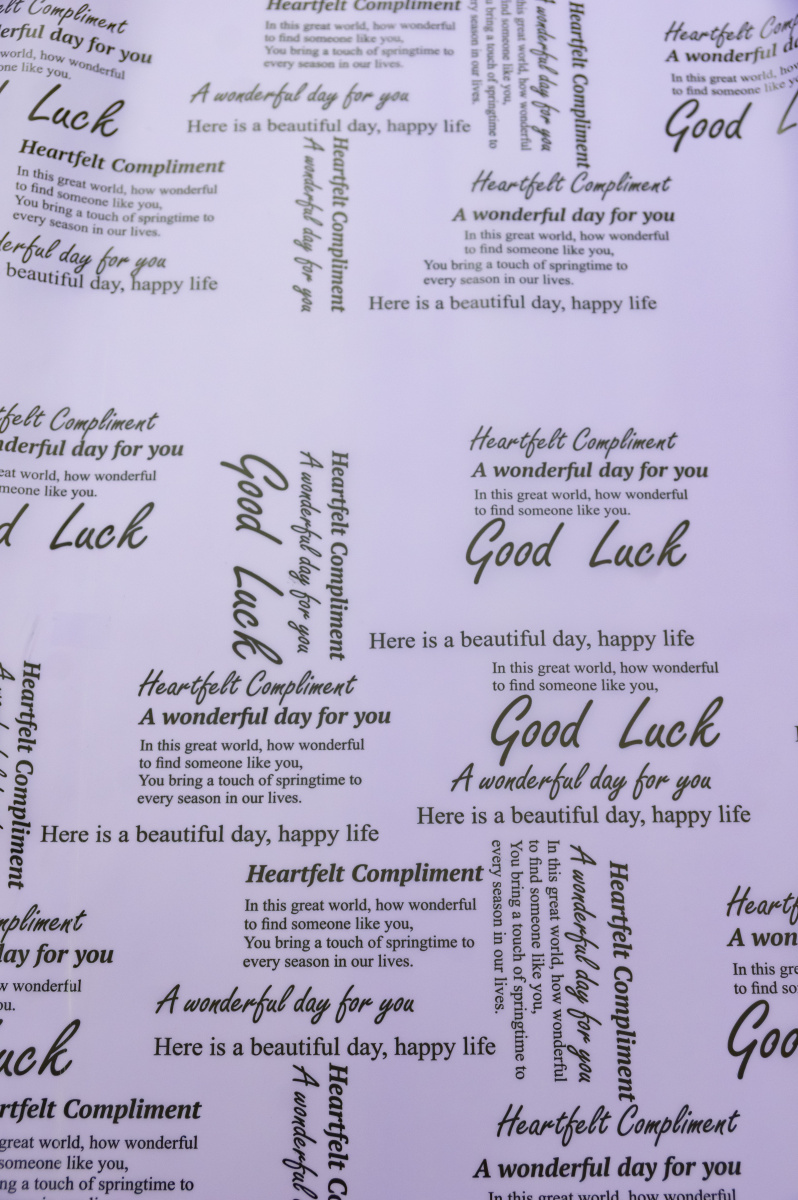 Compliment
day for you
world, how wonderful
one like you.
Luck
Heartfelt Compliment
In this great world, how wonderful
to find someone like you,
You bring a touch of springtime to
every season in our lives.
A wonderful day for you
Here is a beautiful day, happy life
Heartfelt Compliment
A wonderful day for you
In this great world, how wonderful
to find someone like you,
You bring a touch of springtime to
every season in our lives.
Heartfelt
A wonderful
In this great world, how
to find someone like
Good
Heartfelt Compliment
In this great world, how wonderful
to find someone like you,
You bring a touch of springtime to
every season in our lives.
day for you
beautiful day, happy life
Heartfelt Compliment
A wonderful day for you
Heartfelt Compliment
A wonderful day for you
In this great world, how wonderful
to find someone like you,
You bring a touch of springtime to
every season in our lives.
Here is a beautiful day, happy life
Compliment
day for you
world, how wonderful
like you.
Luck
Heartfelt Compliment
A wonderful day for you
Good Luck
Heartfelt Compliment
A wonderful day for you
In this great world, how wonderful
to find someone like you.
Good Luck
Here is a beautiful day, happy life
Heartfelt Compliment
Heartfelt Compliment
A wonderful day for you
In this great world, how wonderful
to find someone like you,
You bring a touch of springtime to
every season in our lives.
Here is a beautiful day, happy life
In this great world, how wonderful
to find someone like you,
Good Luck
A wonderful day for you
Here is a beautiful day, happy life
Heartfelt Compliment
In this great world, how wonderful
to find someone like you,
You bring a touch of springtime to
every season in our lives.
A wonderful day for you
Here is a beautiful day, happy life
Heartfelt Compliment
A wonderful day for you
In this great world, how wonderful
to find someone like you,
You bring a touch of springtime to
every season in our lives.
day for you
wonderful
A won
In this
to find
Heartfelt Compliment
A wonderful
Compliment
great world, how wonderful
someone like you,
a touch of springtime to
Heartfelt Compliment
A wonderful day for you
In this great world, how wonderful